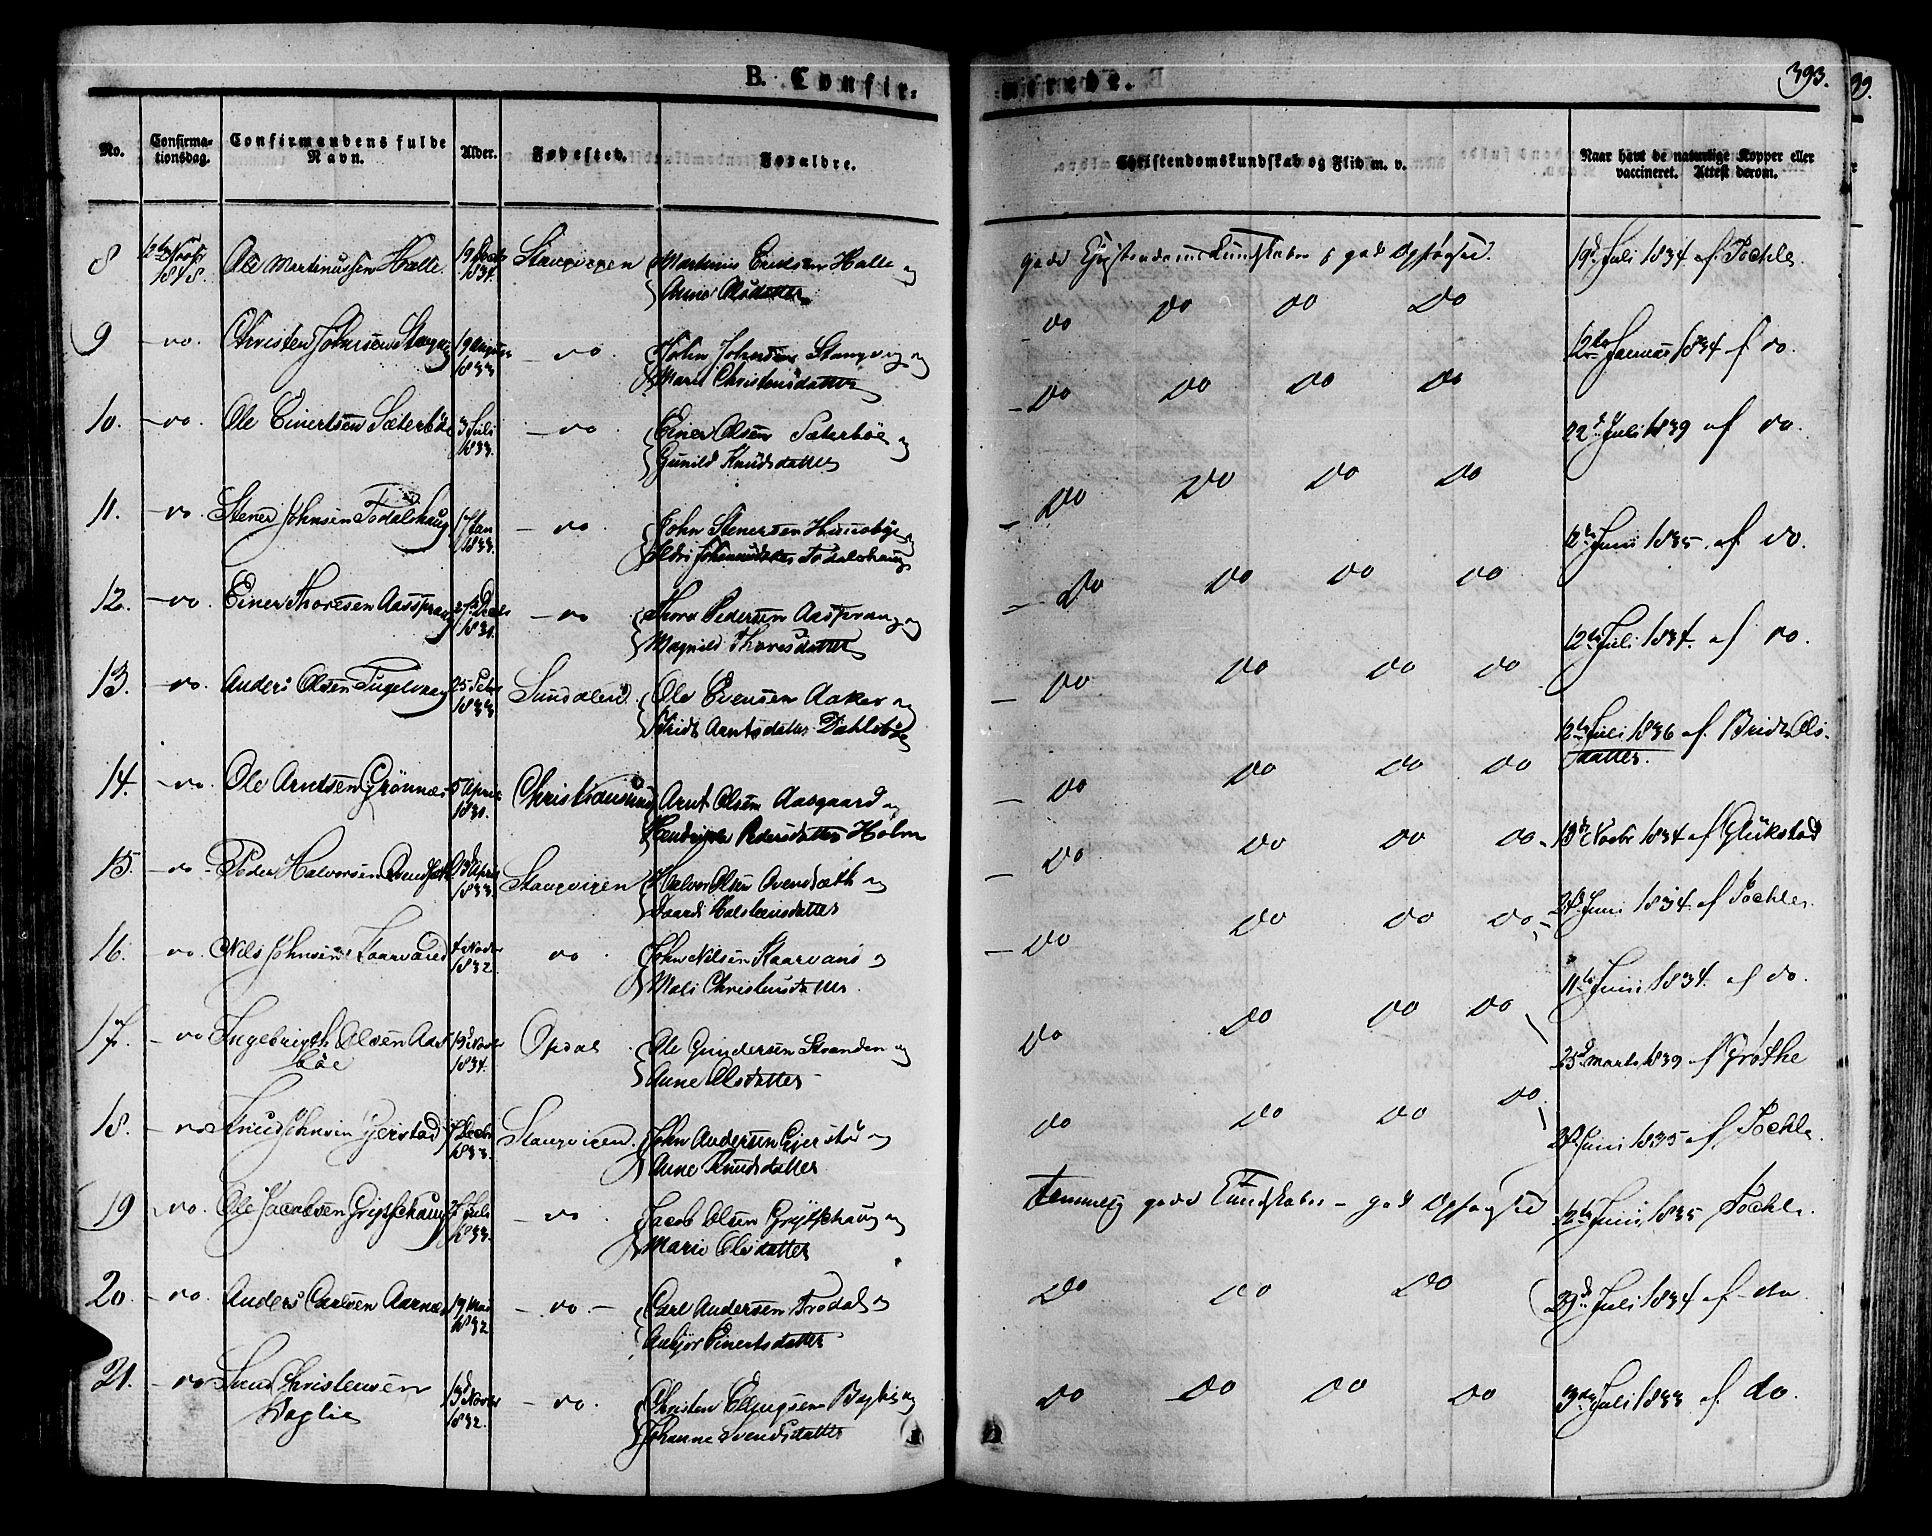 B. Confir-
merede.
393.
No.
Confirma-
tionsdag.
Confirmandens fulde
Navn.
Alder.
Fødested.
Forældre.
Christendomskundskab og Flid m. v.
Naar havt de naturlige Kopper eller
vaccineret. Attest derom.
8
1848.
Ole Martinussen Halle
19 Decbr
1834.
Stangvigen
Martinus Ericksen Halle og
Anne Olsdatter
gode Christendomskundskaber og god Opførsel.
19de Juli 1834 af Bøchle
9
- do.
Christen Johnsen Stangvig
19 August
1833
- do.
John Johnsen Stangvig og
Marit Christensdatter
do do do do
12te Januar 1834 af do.
10.
- do.
Ole Einertsen Sæterbøe
3 Juli
1833.
- do
Einer Olsen Sæterbøe og
Gunild Knudsdatter
- do do do do
22de Juli 1839 af do.
11.
- do.
Stener Johnsen Todalshaug
17 Jan
1833.
- do
John Stenersen
Johannesdatter Todalshaug
- do do do do
12te Juni 1835 af do.
12.
- do.
Einer Thoresen Aasprang
27 Decbr
- do
Thore Pedersen Aasprang og
Magnild Thoresdatter
- do do do do
12te Juli 1834. af do.
13.
- do.
Anders Olsen Fugelvaag
25 Febr
1833
Sundalen
Ole Evensen Aaker og
Arntsdatter Dahlsbøe
- do do do do
12te Juli 1836 af Brides Ols-
datter.
14.
- do.
Ole Arntsen Grønnæs
5 April
Christiansund
Arnt Olsen Aasgaard og
Pedersdatter Holm
- do do do do
13de Novbr 1834 af Glükstad
15.
- do -
Peder Halvorsen
13 April
1833.
Stangvigen
Halvor Olsen og
Halsteinsdatter
- do do do do
24de Juni 1834. af Bøchle
16.
- do.
Nils Johnsen Kaarvand
4 Novbr
1832.
do.
John Nilsen Kaarvand og
Mali Christensdatter
- do do do do
11te Juni 1834. af do.
17.
- do
Ingebrigt Olsen Aas
bøe
19 Novbr
1834.
Opdal
Ole Gundersen Stranden og
Anne Olsdatter
do do do do
25de Marts 1839 af Grøthe
18.
- do
Knud Johnsen Gjerstad
Decbr
1833.
Stangvigen.
John Andersen Gjerstad og
Anne Knudsdatter
do do do do
24de Juni 1835 af Bøchle.
19
- do.
Ole Jacobsen
Juli
1833.
- do.
Jacob Olsen og
Marie Olsdatter
temmelig gode Kundskaber - god Opførsel
12te Juni 1835 Bøchle.
20
- do.
Anders Carlsen Aarnæs
19 Mai
1832
- do. -
Carl Andersen Trodal og
Anbjør Einertsdatter
do do do
29de Juli 1834 af do
21.
- do
Christensen
Bøglie
13 Novbr
1832.
- do.
Christen Ellingsen og
Johanne Svendsdatter
do do do do
3die Juli 1833 af do.